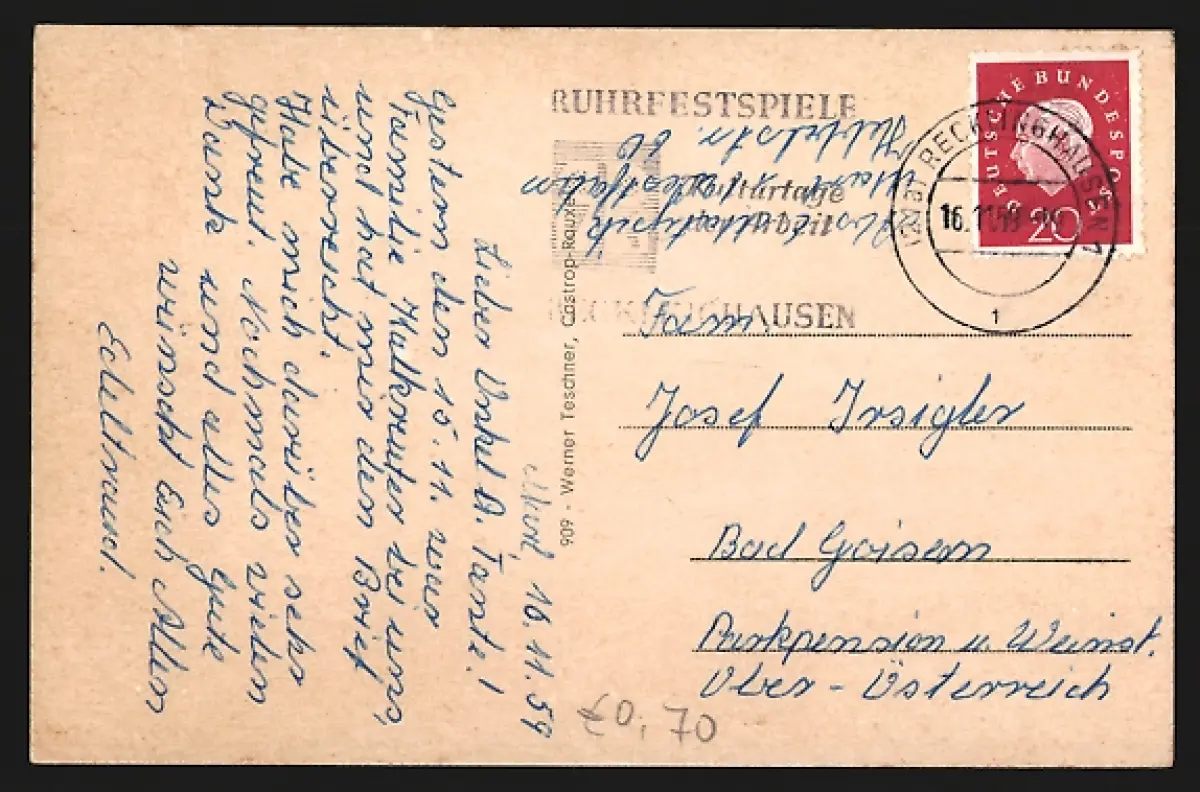 Marl, 16.11.59
Lieber Onkel u. Tante!
Gestern den 15.11. war
Familie Halkruter bei uns,
und hat mir den Brief
überreicht.
Habe mich darüber sehr
gefreut. Nochmals vielen
Dank und alles Gute
wünscht Euch Allen
Edeltraud.
909 - Werner Teschner, Castrop-Rauxel
RUHRFESTSPIELE
Kulturtage
RECKLINGHAUSEN
Marl
Westfalen
DEUTSCHE BUNDESPOST
20
(21a) RECKLINGHAUSEN 1
16.11.59
1
Fam.
Josef Irsigler
Bad Goisern
Parkpension u. Weinst.
Ober-Österreich
£0,70